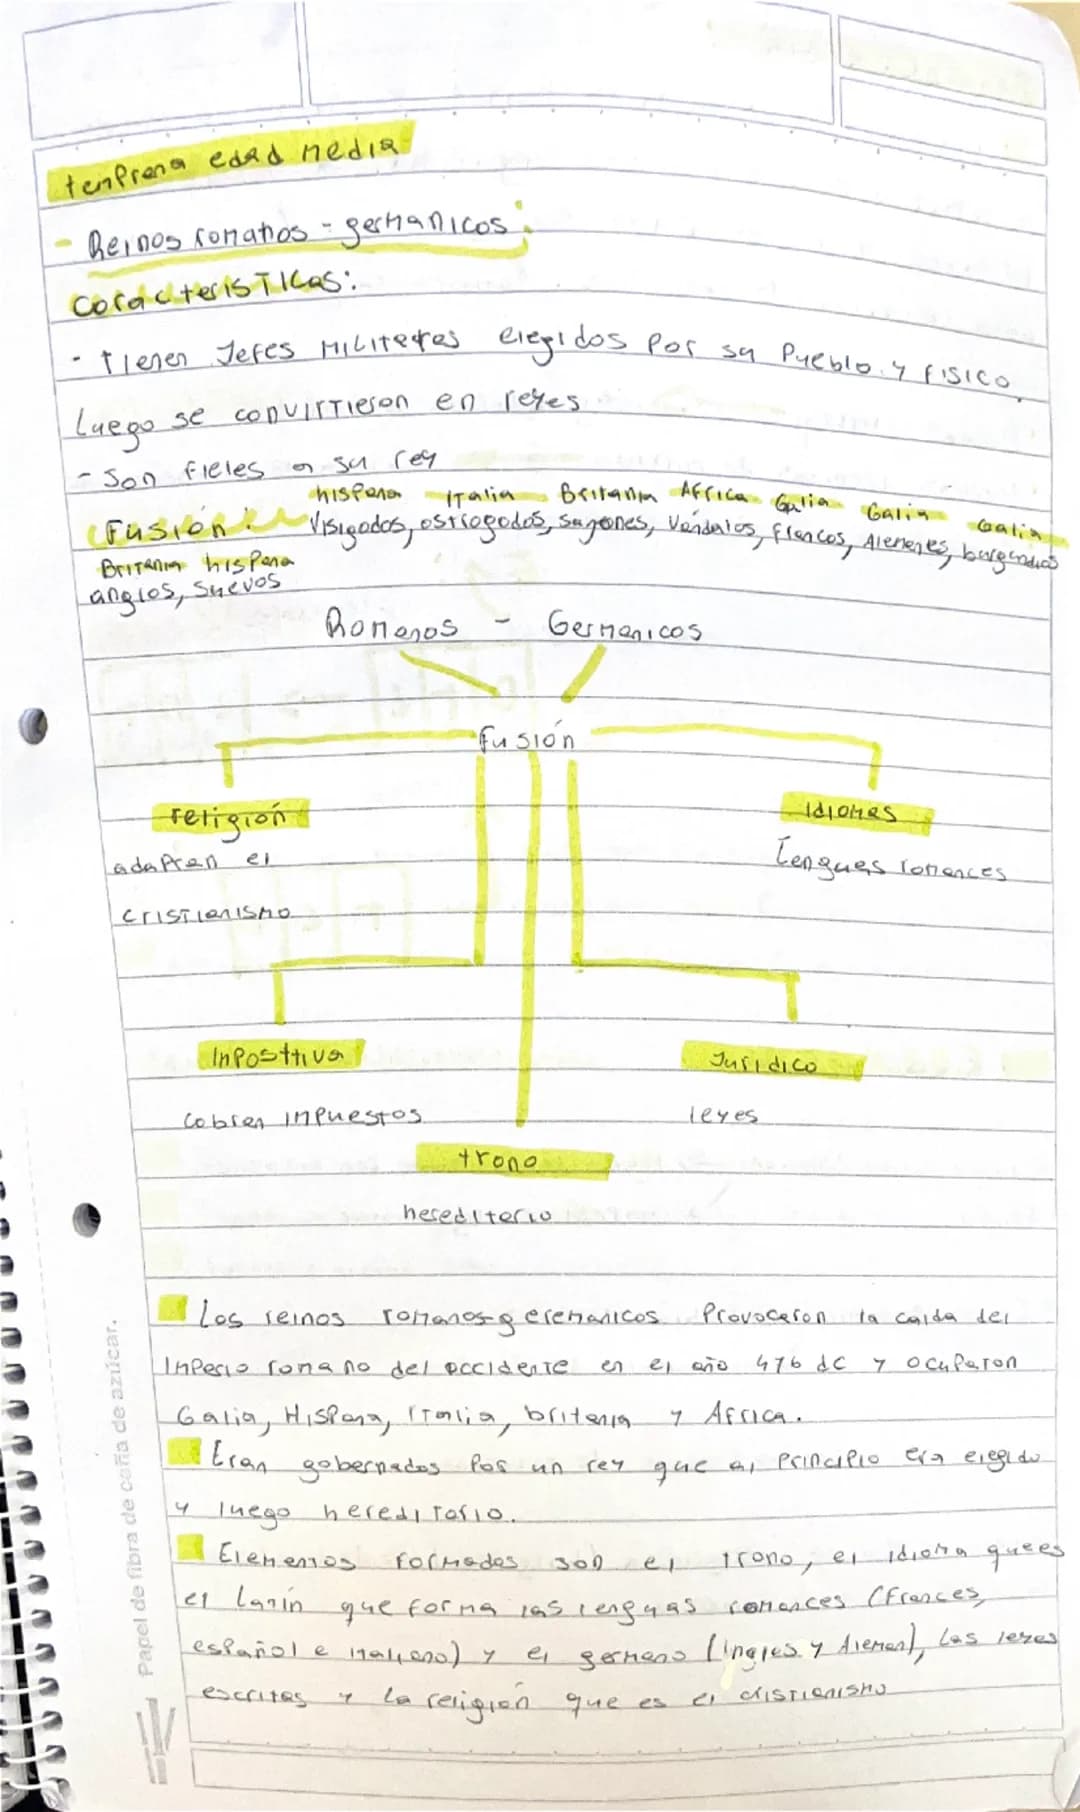 temprana edad media
- Reinos romanos - germanicos:
Características:
- tienen Jefes Militares elegidos por su Pueblo y fisico
Luego se convirtieron en reyes
- Son fieles a su rey
hispana Italia Britania Africa Galia Galia Galia
Fusión: Visigodos, ostrogodos, sajones, Vandalos, francos, Alemanes, burgundios
Britania hispana
anglos, suevos
Romanos - Germanicos
fusión
religión
Idiomas
adaptan el
Lenguas romances
cristianismo
Inposttiva
Juridico
cobran impuestos
leyes
trono
hereditario
Los reinos romanos-geremanicos Provocaron la caida del
Inperio romano del occidente en el año 476 dc y ocuparon
Galia, Hispana, Italia, britania y Africa.
Eran gobernados por un rey que al principio era elegido
y luego hereditario.
Elementos formados son el trono, el idioma que es
el Latín que forma las lenguas romances (Frances,
español e italiano) y el germano (ingles y Aleman), las leyes
escritas y la religión que es el cristianismo
Papel de fibra de caña de azúcar.